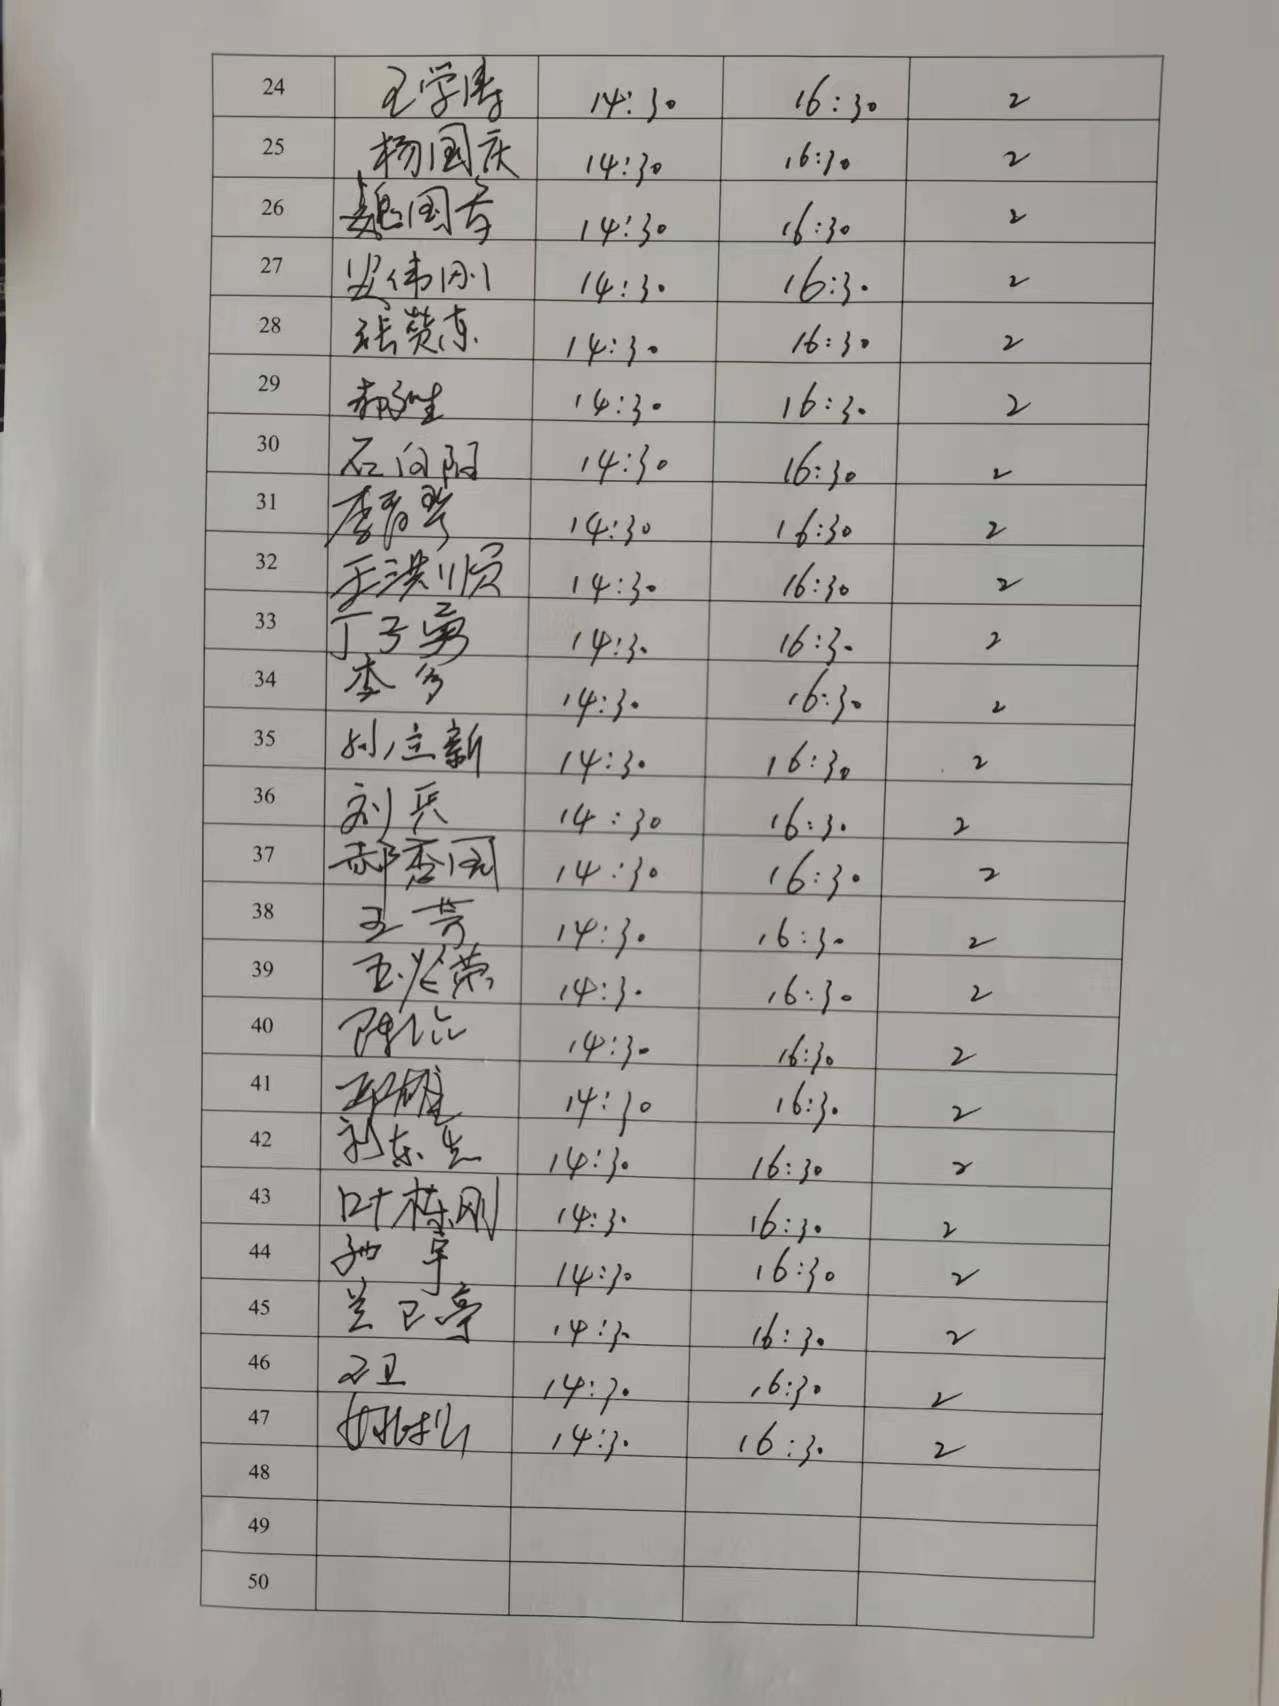 24 王学涛 14:30 16:30 2
25 杨国庆 14:30 16:30 2
26 魏国 14:30 16:30 2
27 伟刚 14:30 16:30 2
28 张赞东 14:30 16:30 2
29 14:30 16:30 2
30 石向阳 14:30 16:30 2
31 李 14:30 16:30 2
32 于洪顺 14:30 16:30 2
33 丁子勇 14:30 16:30 2
34 李 14:30 16:30 2
35 孙立新 14:30 16:30 2
36 刘兵 14:30 16:30 2
37 郝国 14:30 16:30 2
38 王芳 14:30 16:30 2
39 王兆荣 14:30 16:30 2
40 陈 14:30 16:30 2
41 14:30 16:30 2
42 刘东 14:30 16:30 2
43 叶栋刚 14:30 16:30 2
44 宇 14:30 16:30 2
45 兰卫亭 14:30 16:30 2
46 卫 14:30 16:30 2
47 14:30 16:30 2
48
49
50